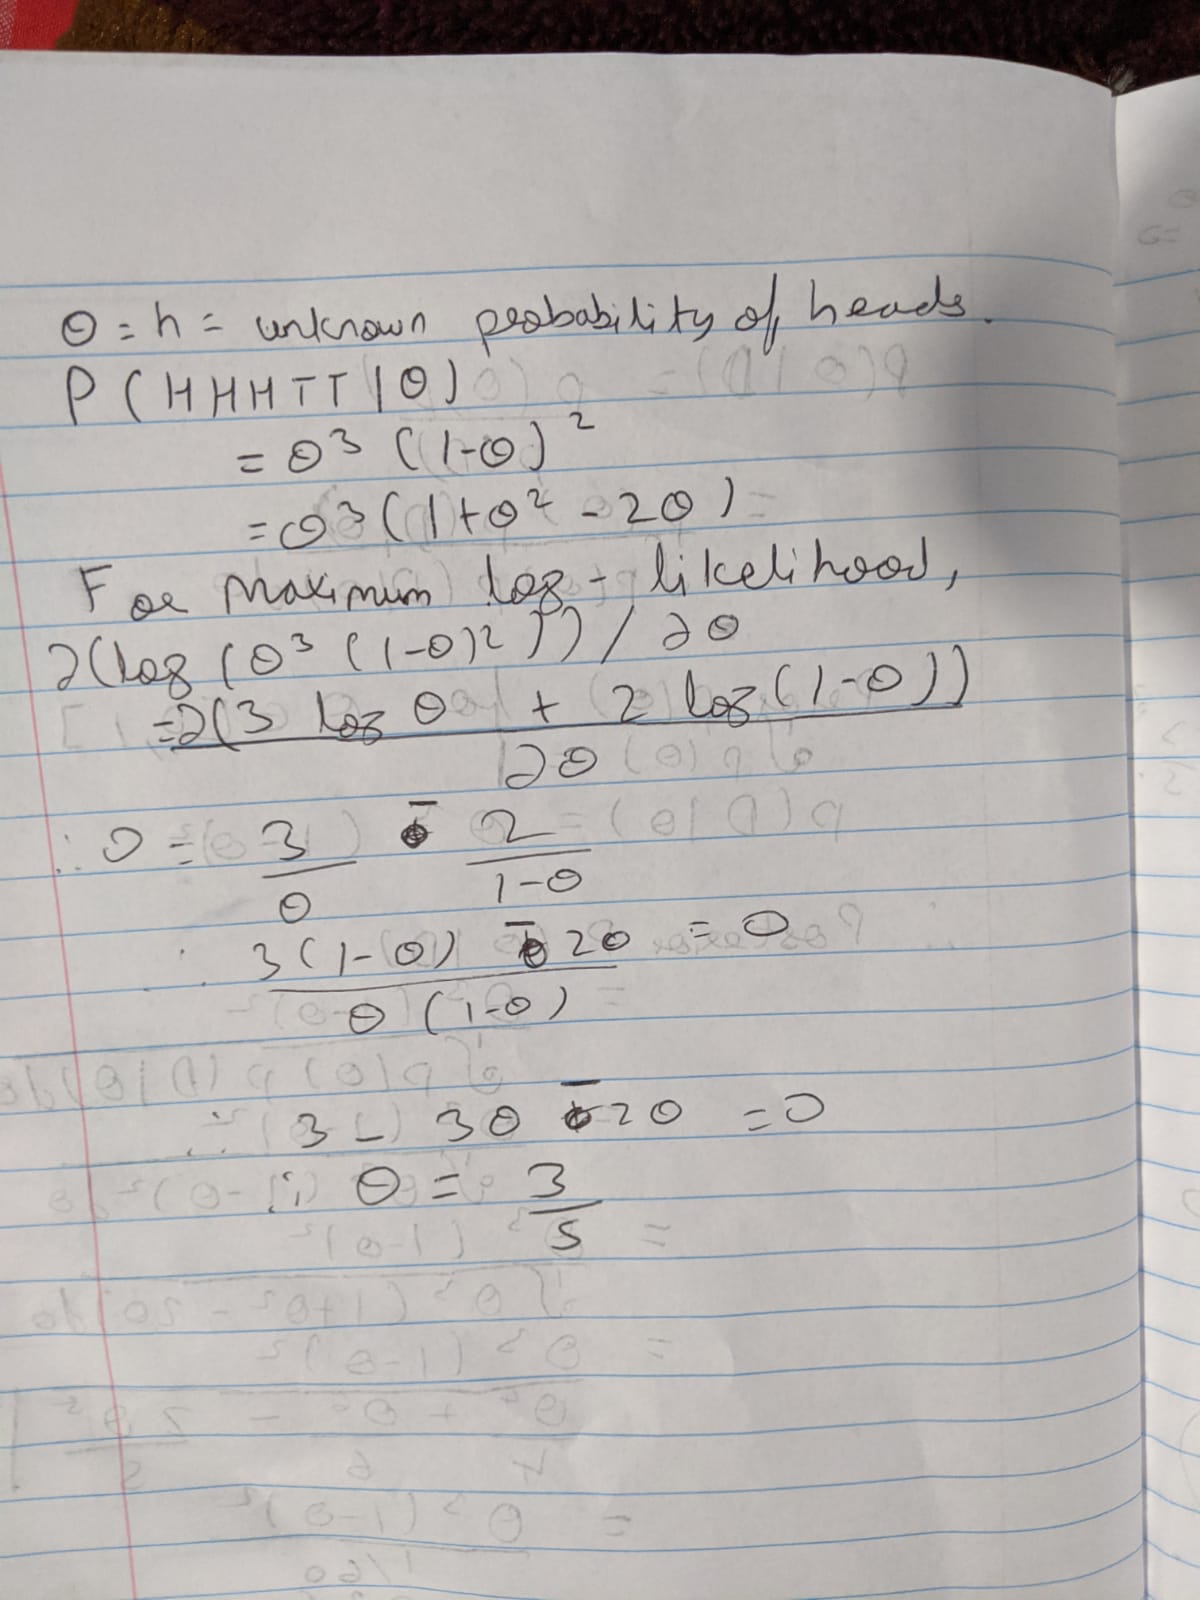 θ = h = unknown probability of heads.
P(HHHTT|θ)
= θ³ (1-θ)²
= θ³ (1+θ² - 2θ)
For maximum log-likelihood,
∂(log (θ³ (1-θ)²)) / ∂θ
= ∂(3 log θ + 2 log (1-θ))
∂θ
∴ 0 = 3/θ - 2/(1-θ)
∴ 3(1-θ) - 2θ = 0
θ (1-θ)
∴ 3 - 3θ - 2θ = 0
∴ θ = 3/5